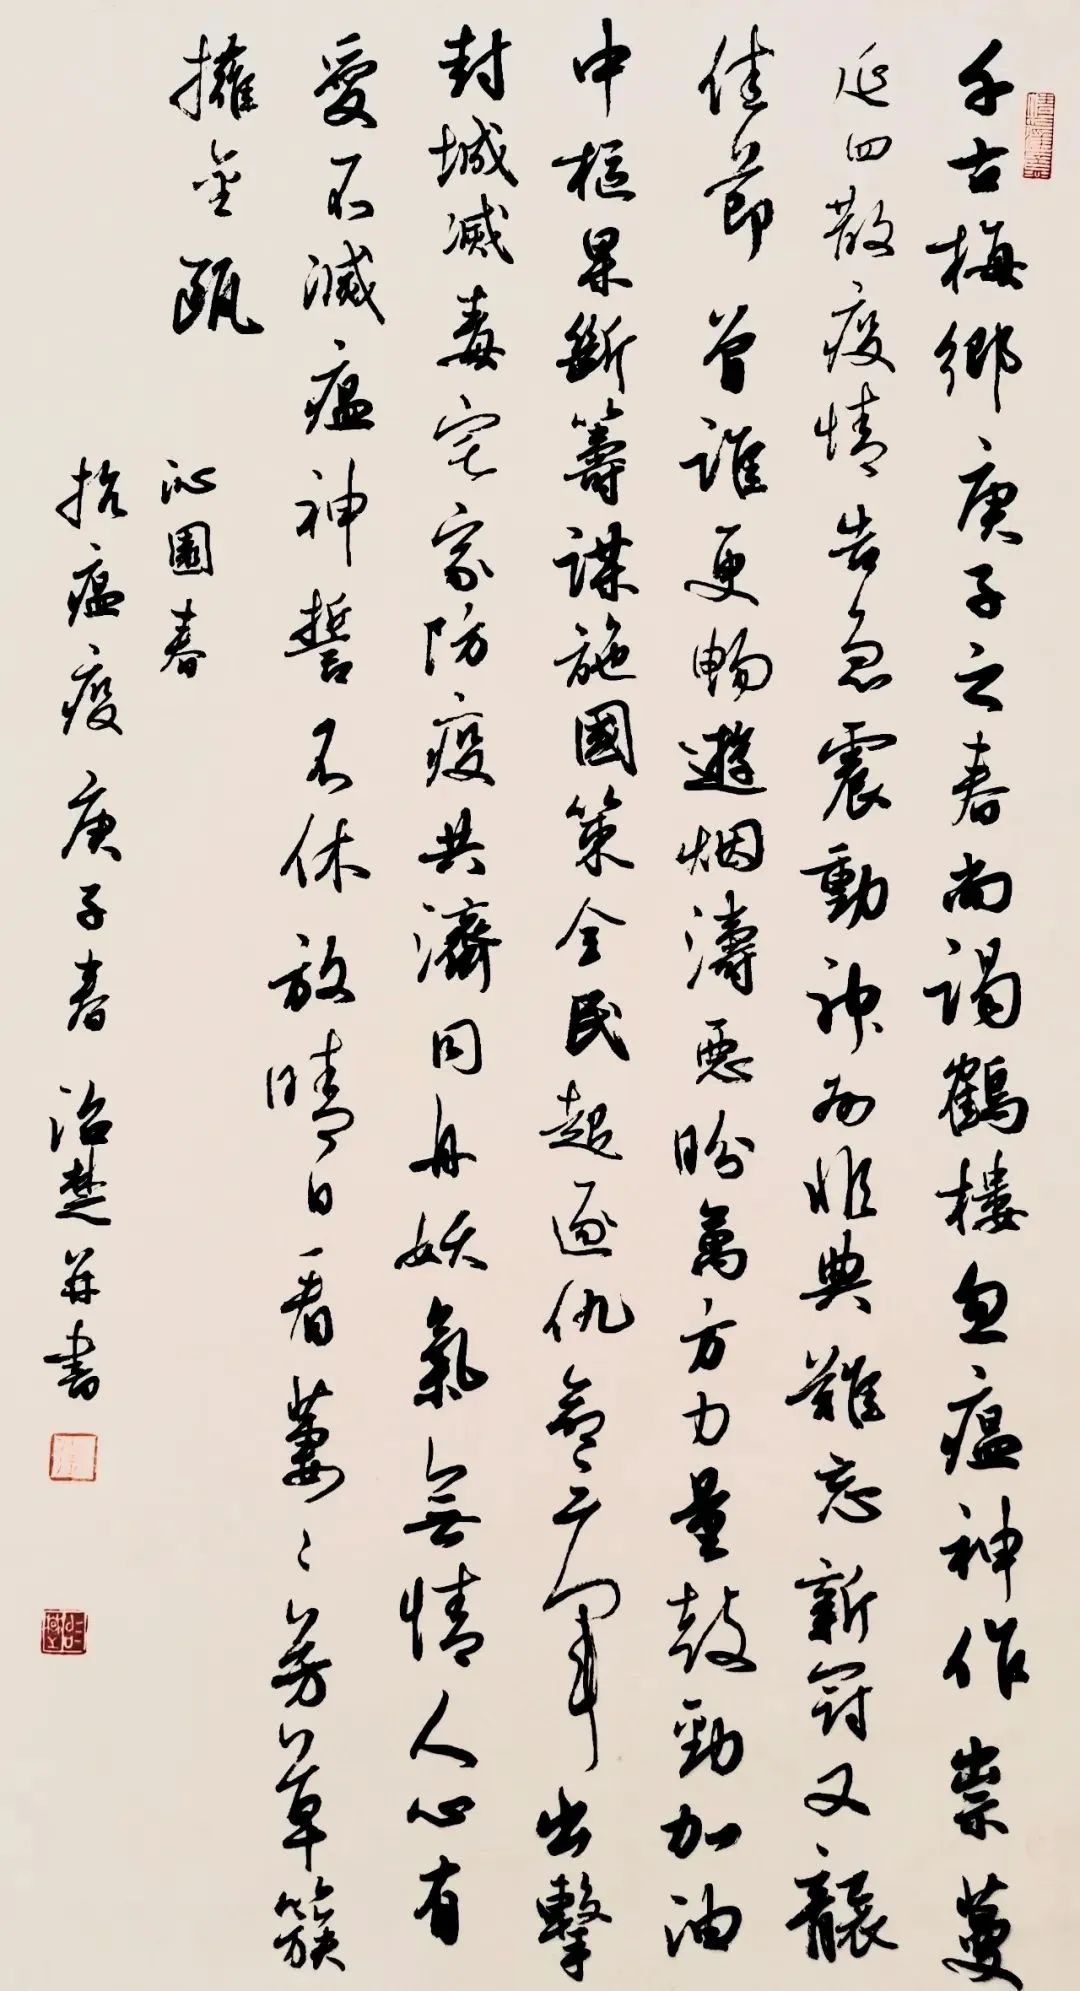 千古梅鄉庚子之春尚謁鶴樓忽瘟神作祟蔓
延四散疫情告急震動神州非典難忘新冠又襲
佳節曾誰更暢遊烟濤惡盼萬方力量鼓勁加油
中樞果斷籌謀施國策全民起逐仇命三軍出擊
封城滅毒宅家防疫共濟同舟妖氣無情人心有
愛不滅瘟神誓不休放晴日看萋々芳草簇
擁金甌
沁園春
抗瘟疫庚子春治楚并書